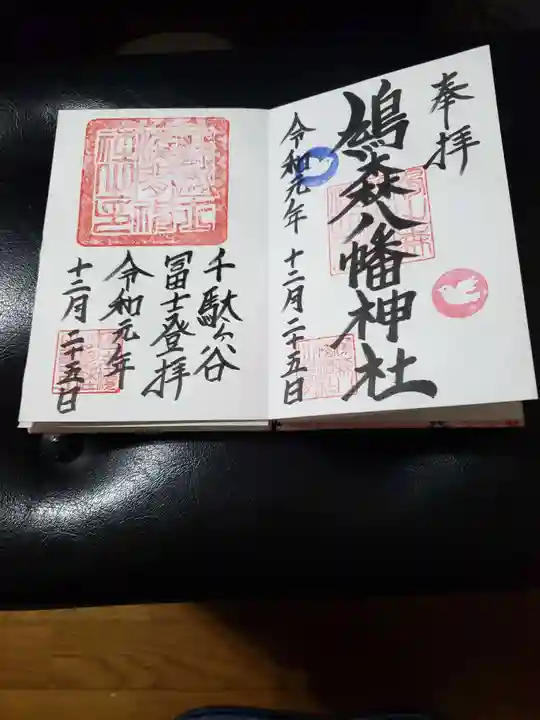 奉拝
鳩森八幡神社
令和元年 十二月二十五日
千駄ヶ谷
冨士登拝
令和元年
十二月二十五日